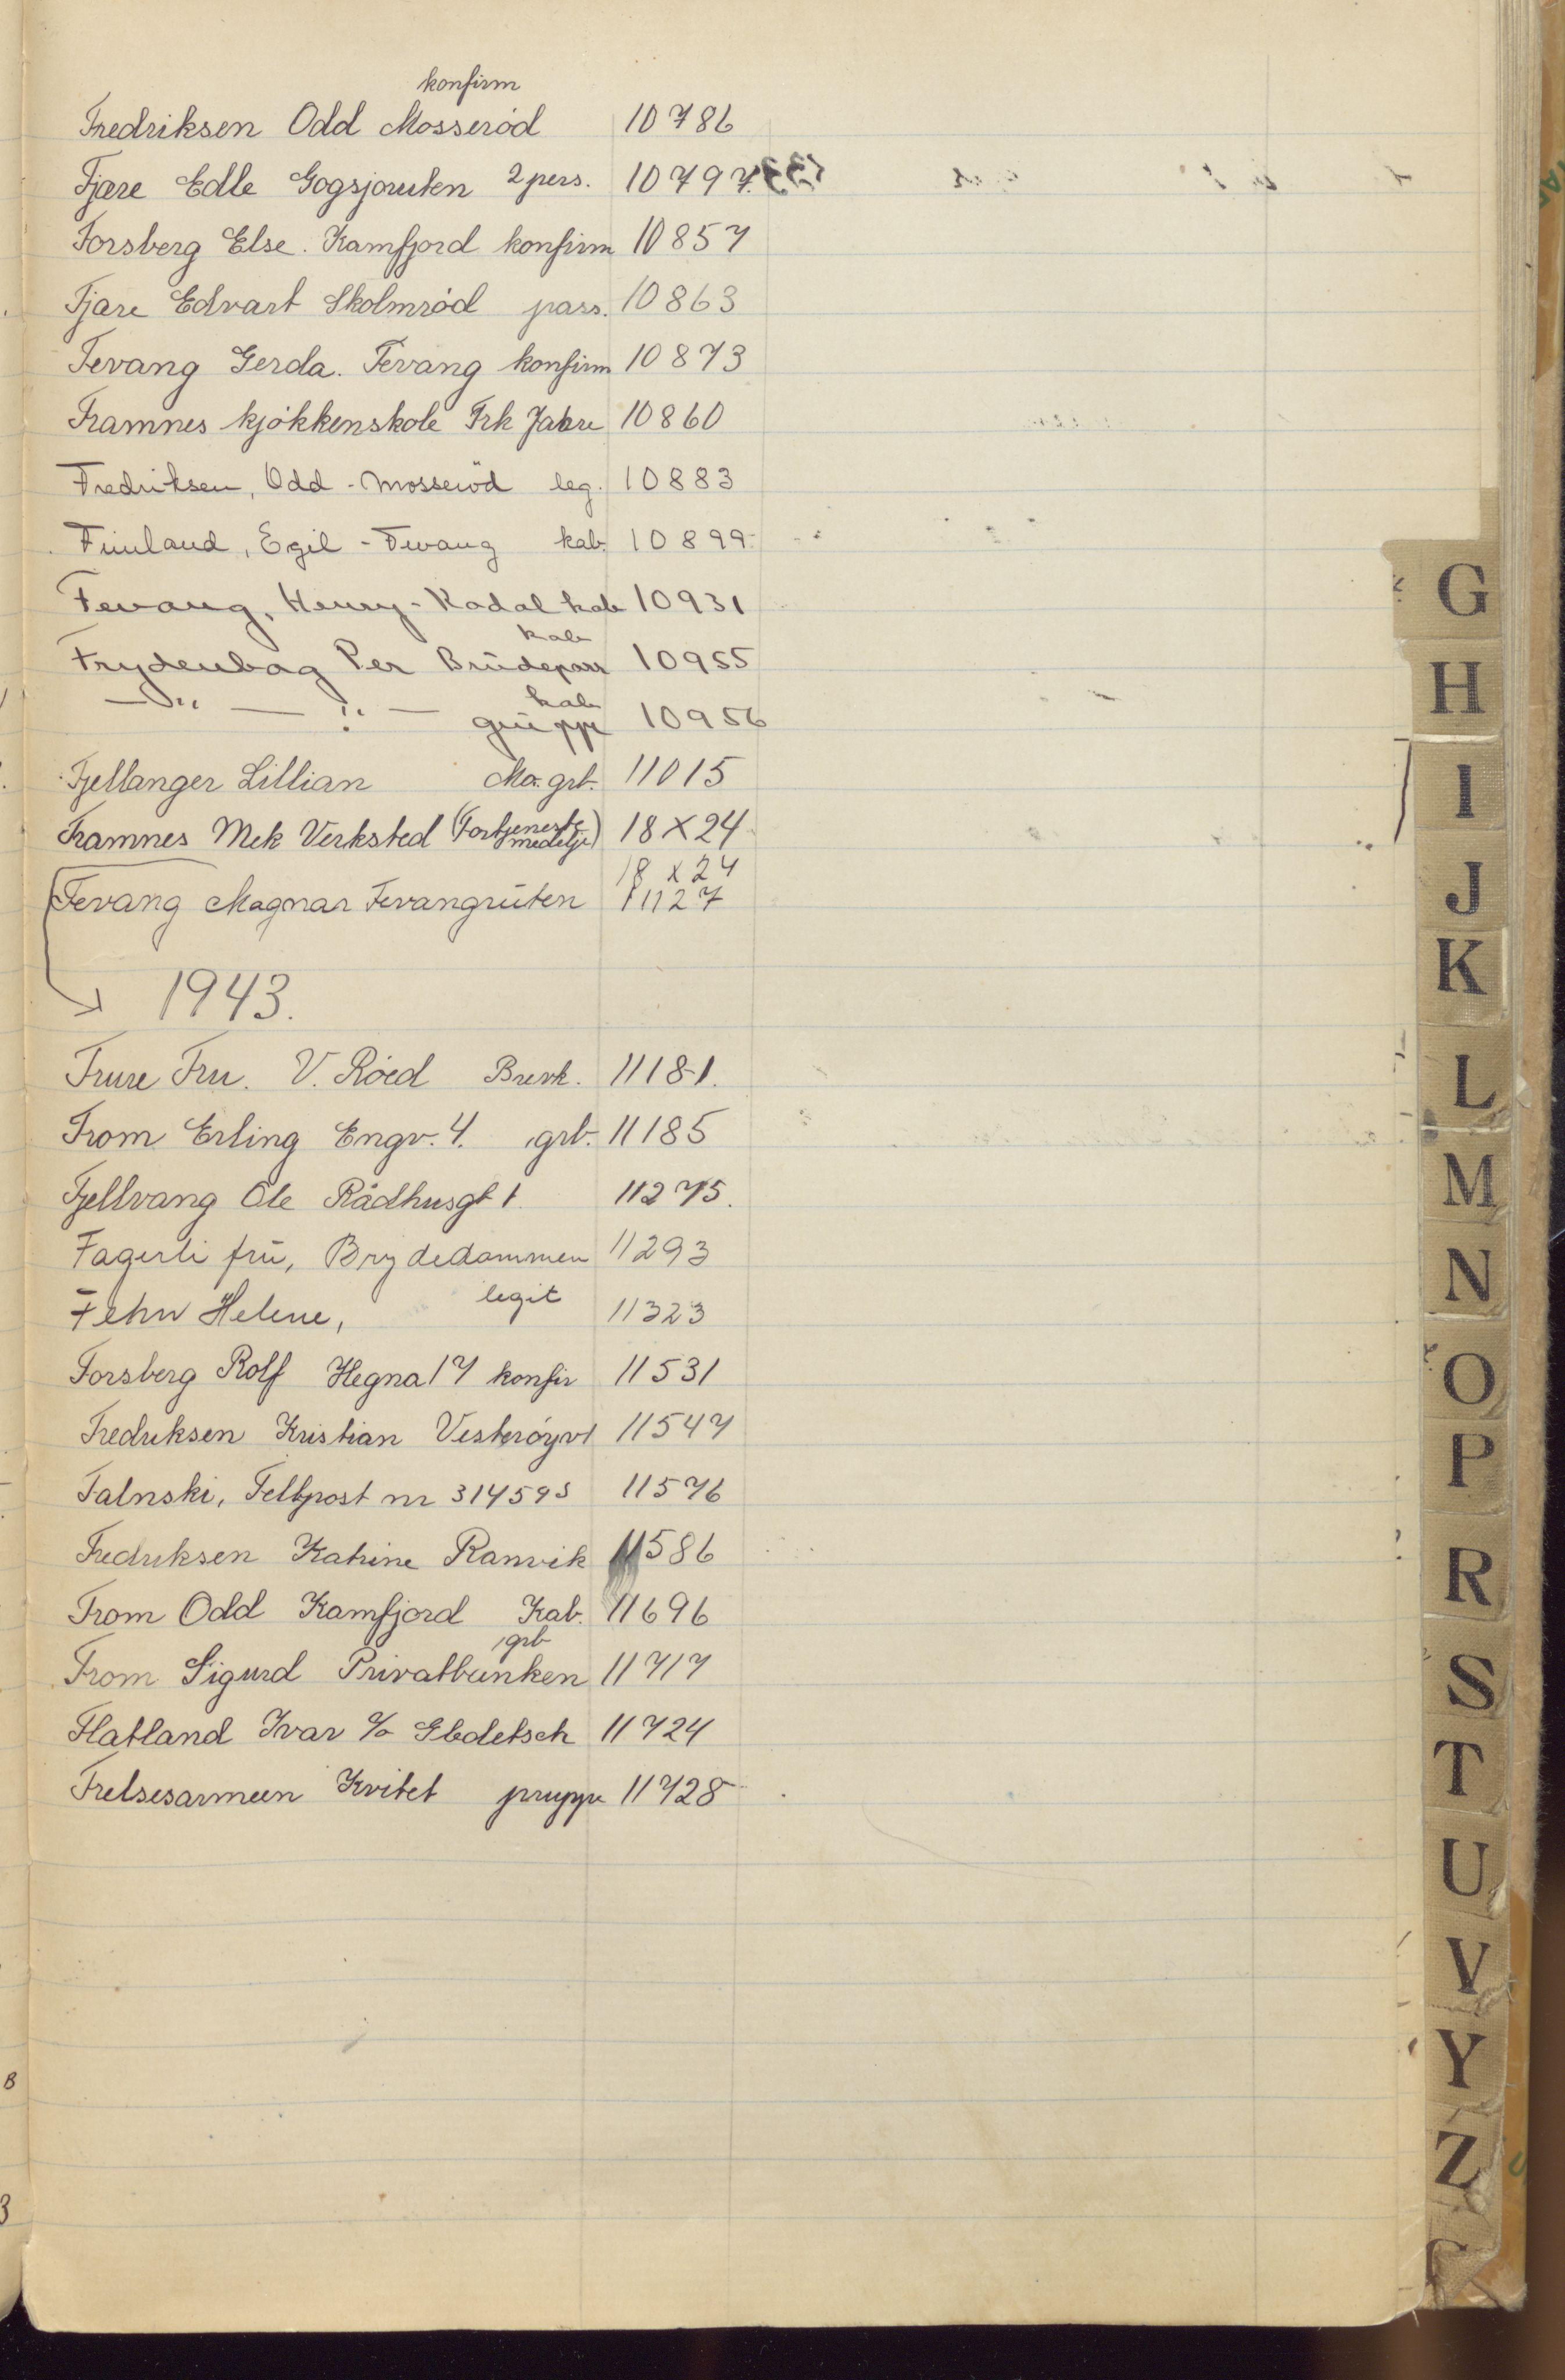 konfirm
Fredriksen Odd Mosserød 10786
Fjære Edle Gogsjøruten 2 pers. 10797.
Forsberg Else. Kamfjord konfirm 10857
Fjære Edvart Skolmrød pass. 10863
Fevang Gerda. Fevang konfirm 10873
Framnes kjøkkenskole Frk Jahre 10860
Fredriksen, Odd - Mosseröd leg. 10883
Finland, Egil - Fevang kab. 10899
Fevang, Henry - Kodal kab 10931
kab
Frydenbag Per Brüdepar 10955
kab
— " — " — grüppe 10956
Fjellanger Lillian Ma. grb. 11015
Framnes Mek Verksted (Fortjeneste medalje) 18 X 24
18 x 24
Fevang Magnar Fevangrüten 11127
1943.
Frure Fru. V. Röed Brevk. 11181.
From Erling Engv. 4. grb. 11185
Fjellvang Ole Rådhusgt 1 11275.
Fagerli frü, Brydedammen 11293
legit
Fehn Helene, 11323
Forsberg Rolf Hegna 17 konfir 11531
Fredriksen Kristian Vesterøyvt 11547
Falnski, Feltpost nr 31459S 11576
Fredriksen Katrine Ranvik 11586
From Odd Kamfjord Kab. 11696
grb
From Sigurd Privatbanken 11717
Flatland Ivar c/o 11724
Frelsesarmeen Kvitet gruppe 11728
G
H
I
J
K
L
M
N
O
P
R
S
T
U
V
Y
Z